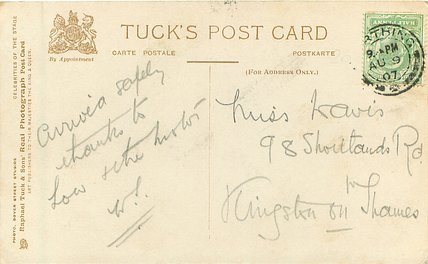 TUCK'S POST CARD
CARTE POSTALE
POSTKARTE
By Appointment
(FOR ADDRESS ONLY.)
CELEBRITIES OF THE STAGE
Raphael Tuck & Sons' Real Photograph Post Card
ART PUBLISHERS TO THEIR MAJESTIES THE KING & QUEEN
PHOTO. DOVER STREET STUDIOS
HALFPENNY
TRING
9. PM
AU 9
07
Arrived safely
thanks to
Low & the motor
Miss Davis
98 Shortlands Rd
Kingston on Thames